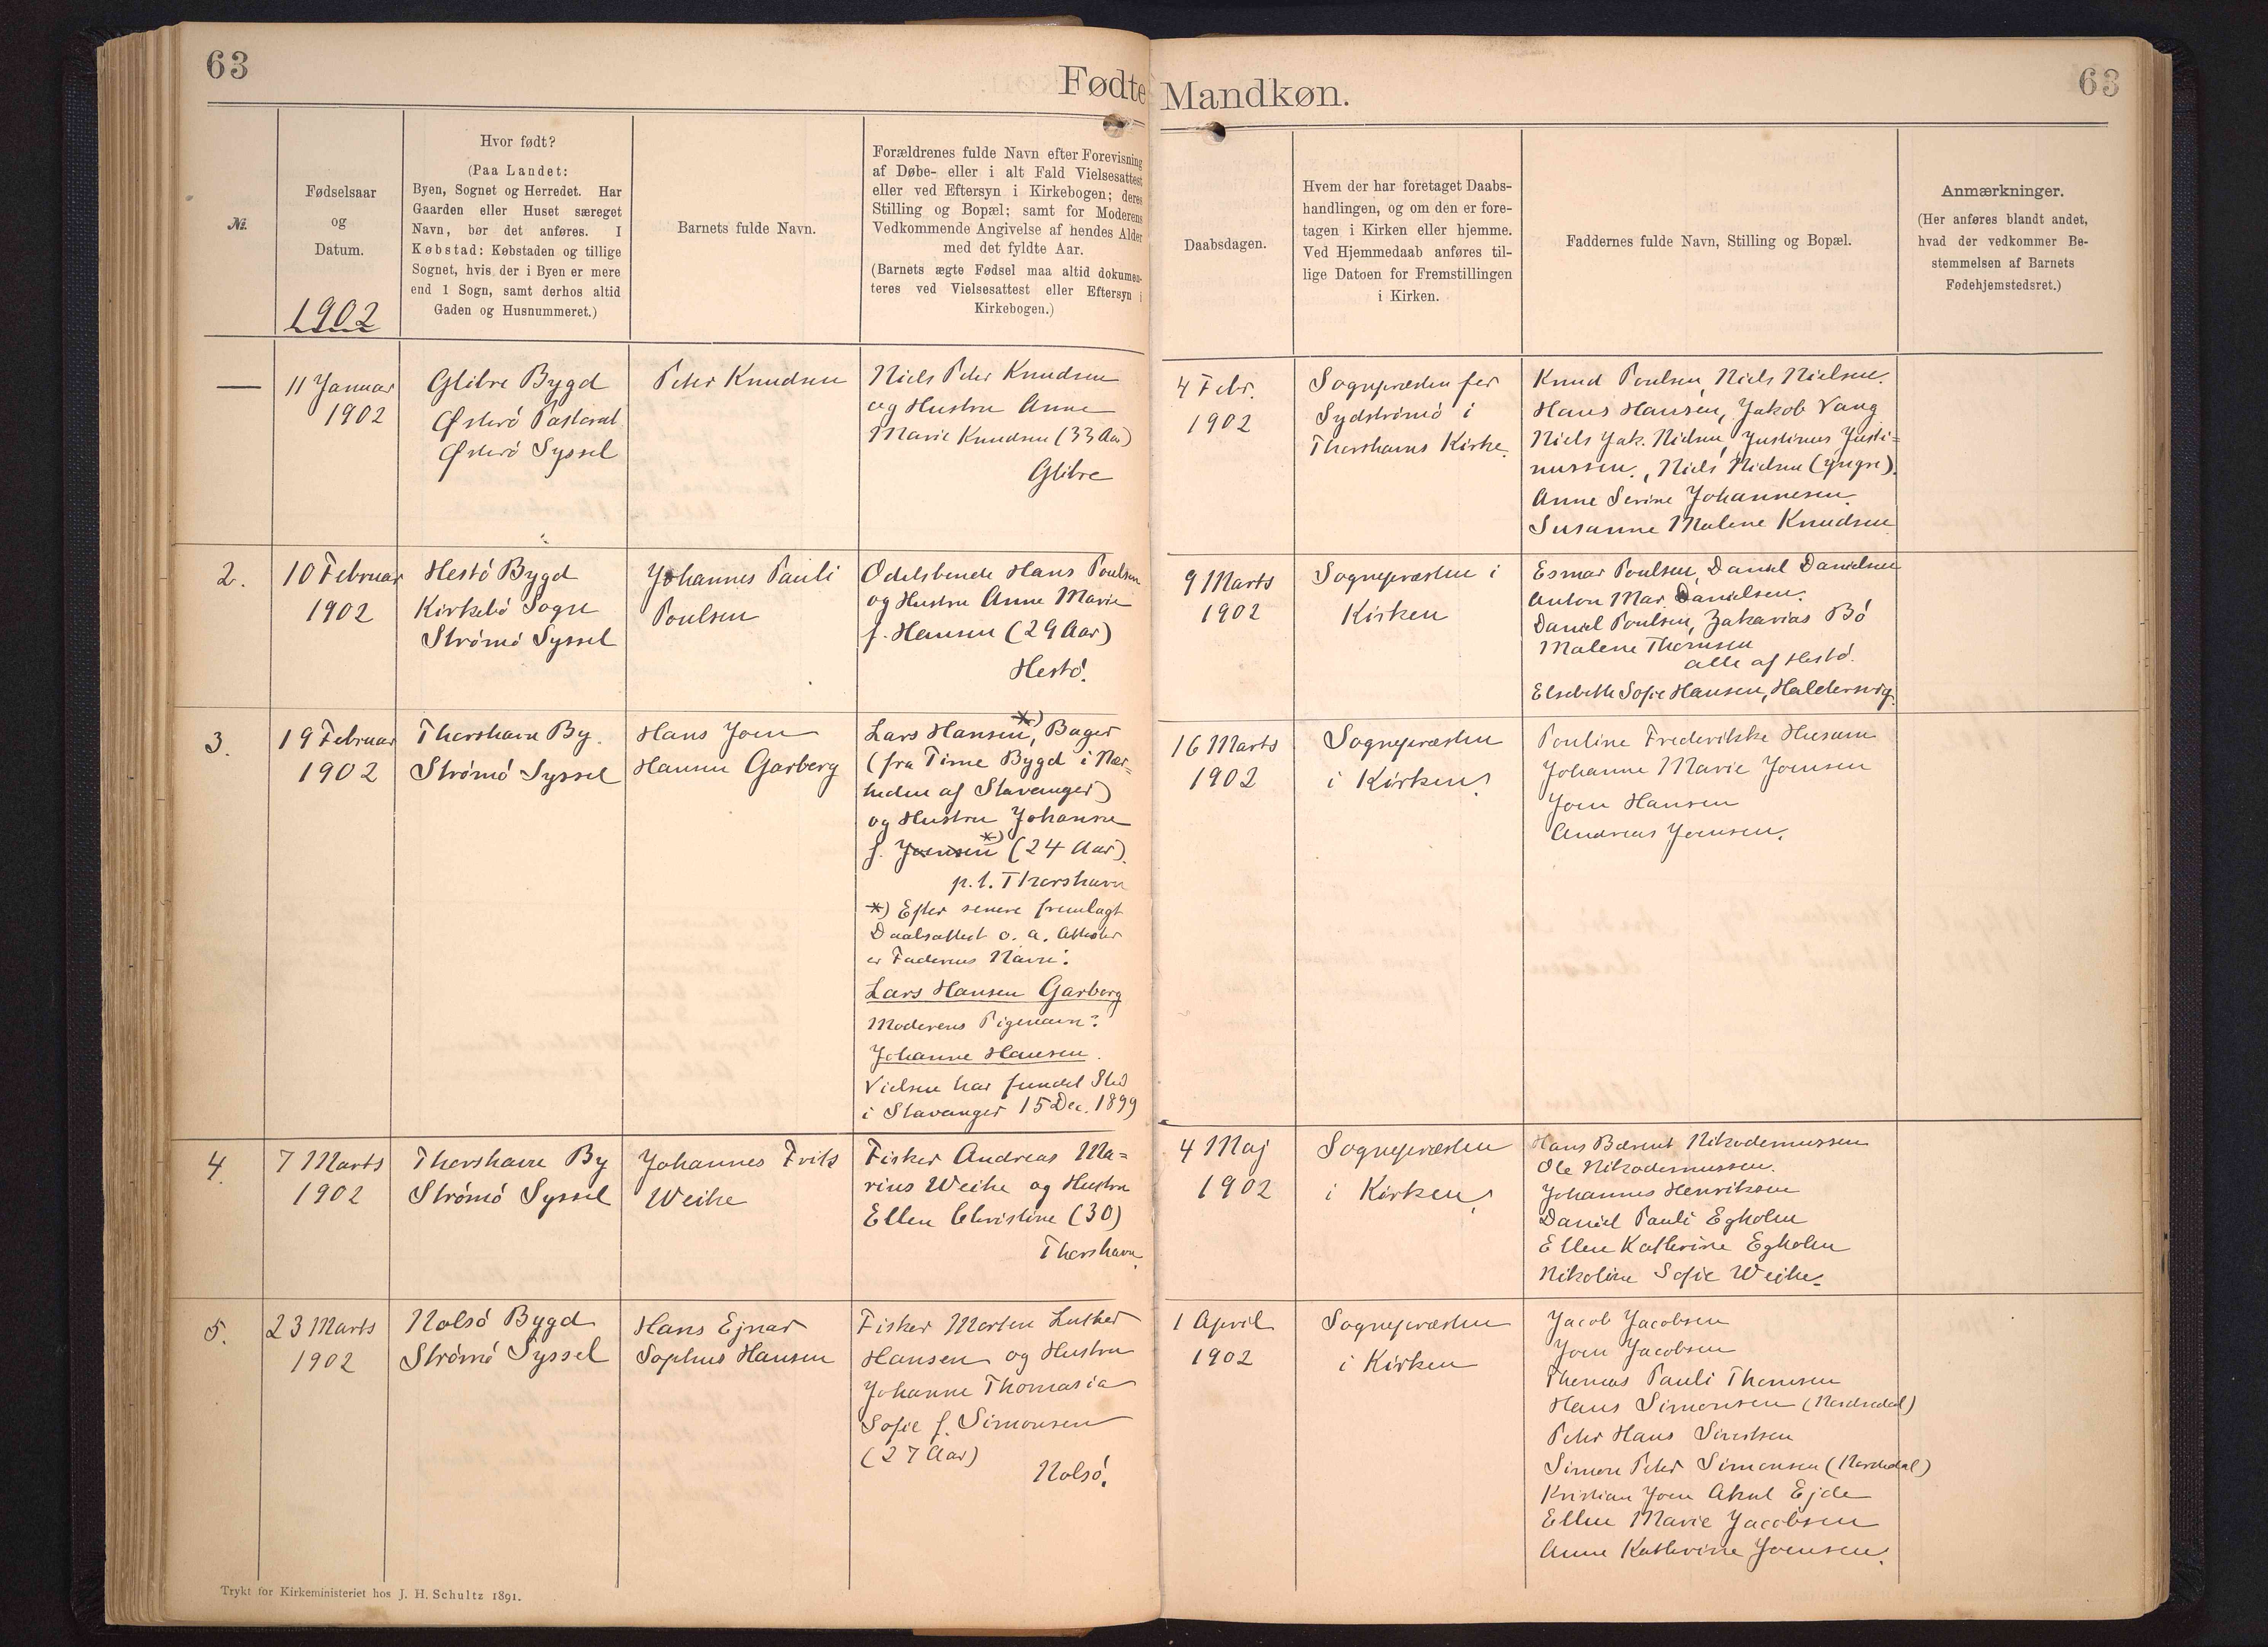 63
63
Fødte Mandkøn.
№.
Fødselsaar
og
Datum.
1902
Hvor født?
(Paa Landet:
Byen, Sognet og Herredet. Har
Gaarden eller Huset særeget
Navn, bør det anføres. I
Købstad: Købstaden og tillige
Sognet, hvis der i Byen er mere
end 1 Sogn, samt derhos altid
Gaden og Husnummeret.)
Barnets fulde Navn.
Forældrenes fulde Navn efter Forevisning
af Døbe- eller i alt Fald Vielsesattest
eller ved Eftersyn i Kirkebogen; deres
Stilling og Bopæl; samt for Moderens
Vedkommende Angivelse af hendes Alder
med det fyldte Aar.
(Barnets ægte Fødsel maa altid dokumen-
teres ved Vielsesattest eller Eftersyn i
Kirkebogen.)
Daabsdagen.
Hvem der har foretaget Daabs-
handlingen, og om den er fore-
tagen i Kirken eller hjemme.
Ved Hjemmedaab anføres til-
lige Datoen for Fremstillingen
i Kirken.
Faddernes fulde Navn, Stilling og Bopæl.
Anmærkninger.
(Her anføres blandt andet,
hvad der vedkommer Be-
stemmelsen af Barnets
Fødehjemstedsret.)
—
11 Januar
1902
Glibre Bygd
Østerö Pastorat
Østerö Syssel
Peter Knudsen
Niels Peter Knudsen
og Hustru Anne
Marie Knudsen (33 Aar)
Glibre
4 Febr.
1902
Sognepræsten for
Sydströmö i
Thorshavns Kirke.
Knud Poulsen, Niels Nielsen.
Hans Hansen, Jakob Vang
Niels Jak. Nielsen, Justinus Justi=
nussen., Niels Nielsen (yngre).
Anne Serine Johannesen.
Susanne Malene Knudsen
2.
10 Februar
1902
Hestö Bygd
Kirkebö Sogn
Strömö Syssel
Johannes Pauli
Poulsen
Odelsbonde Hans Poulsen
og Hustru Anne Marie
f. Hansen (29 Aar)
Hestö.
9 Marts
1902
Sognepræsten i
Kirken
Esmar Poulsen, Daniel Danielsen
Anton Mar. Danielsen.
Daniel Poulsen, Zakarias Bö
Malene Thomsen
alle af Hestö.
Elsebeth Sofie Hansen, Haldersvig.
3.
19 Februar
1902
Thorshavn By.
Strömö Syssel
Hans Joen
Hansen Garberg
Lars Hansen *), Bager
(fra Time Bygd i Nær=
heden af Stavanger)
og Hustru Johanne
f. Joensen *) (24 Aar).
p.t. Thorshavn
*) Efter senere fremlagt
Daabsattest o. a. Attester
er Faderens Navn:
Lars Hansen Garborg
Moderens Pigenavn:
Johanne Hansen.
Vielsen har fundet Sted
i Stavanger 15 Dec. 1899
16 Marts
1902
Sognepræsten
i Kirken.
Pouline Frederikke Husum
Johanne Marie Joensen
Joen Hansen
Andreas Joensen.
4.
7 Marts
1902
Thorshavn By
Strömö Syssel
Johannes Frits
Weihe
Fisker Andreas Ma=
rius Weihe og Hustru
Ellen Christine (30)
Thorshavn.
4 Maj
1902
Sognepræsten
i Kirken.
Hans Bærent Nikodemussen
Ole Nikodemussen.
Johannes Henriksen
Daniel Pauli Egholm
Ellen Kathrine Egholm
Nikoline Sofie Weihe.
5.
23 Marts
1902
Nolsö Bygd
Strömö Syssel
Hans Ejnar
Sophus Hansen
Fisker Morten Luther
Hansen og Hustru
Johanne Thomasia
Sofie f. Simonsen
(27 Aar)
Nolsö.
1 April
1902
Sognepræsten
i Kirken
Jacob Jacobsen
Joen Jacobsen
Thomas Pauli Thomsen
Hans Simonsen (Nordredal)
Peter Hans Sivertsen
Simon Peter Simonsen (Nordredal)
Kristian Joen Ejde
Ellen Marie Jacobsen
Anne Kathrine Joensen.
Trykt for Kirkeministeriet hos J. H. Schultz 1891.